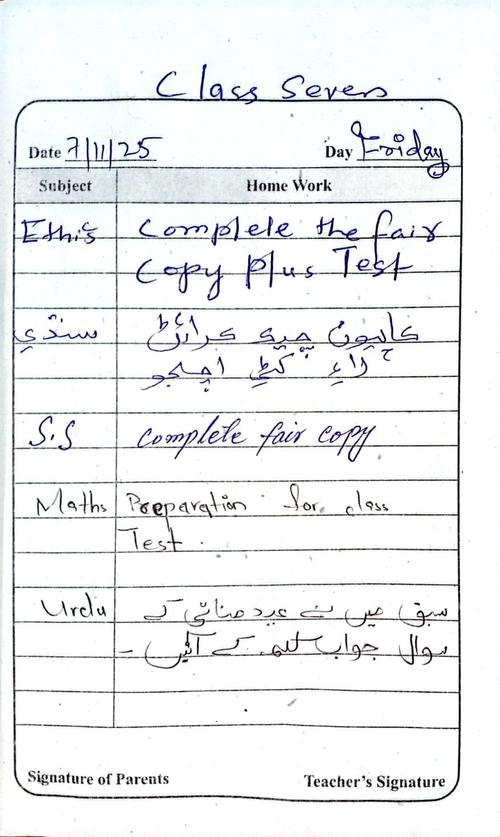 Class Seven
Date 7/11/25 Day Friday
Subject Home Work
Ethis Complete the fair
Copy plus Test
سنڌي ڪاپيون چيڪ ڪرائڻ
لاءِ کڻي اچجو
S.S Complete fair copy
Maths Preparation for class
Test.
Urdu سبق میں نے عید منائی کے
سوال جواب لکھ کے آئیں۔
Signature of Parents Teacher's Signature